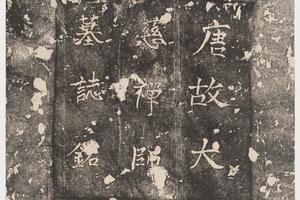 唐故大
慈禪師
墓誌銘